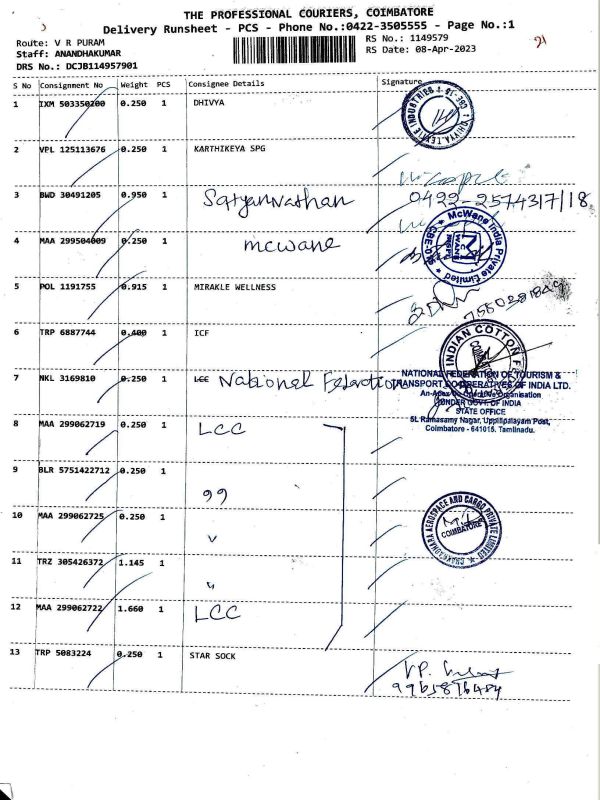 THE PROFESSIONAL COURIERS, COIMBATORE
Delivery Runsheet - PCS - Phone No.:0422-3505555 - Page No.:1
Route: V R PURAM
RS No.: 1149579
Staff: ANANDHAKUMAR
RS Date: 08-Apr-2023
DRS No.: DCJB114957901
S No Consignment No Weight PCS Consignee Details Signature
1 IXM 503350200 0.250 1 DHIVYA
2 VPL 125113676 0.250 1 KARTHIKEYA SPG
3 BWD 30491205 0.950 1 Satyanvathan 0422-2574317/18
4 MAA 299504009 0.250 1 mcwane
McWane India Private Limited
CBE-016
5 POL 1191755 0.915 1 MIRAKLE WELLNESS
6 TRP 6887744 0.400 1 ICF
INDIAN COTTON
7 NKL 3169810 0.250 1 LCC National Federation
NATIONAL FEDERATION OF TOURISM &
TRANSPORT CO-OPERATIVES OF INDIA LTD.
UNDER GOVT. OF INDIA
STATE OFFICE
5L Ramasamy Nagar, Uppilipalayam Post,
Coimbatore - 641015. Tamilnadu.
8 MAA 299062719 0.250 1 LCC
9 BLR 5751422712 0.250 1 99
10 MAA 299062725 0.250 1
AEROSPACE AND CARGO PRIVATE LIMITED
COIMBATORE
11 TRZ 305426372 1.145 1
12 MAA 299062722 1.660 1 LCC
13 TRP 5083224 0.250 1 STAR SOCK